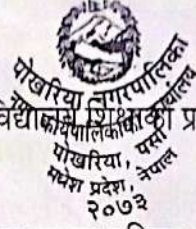 पोखरिया नगरपालिका
नगर कार्यपालिकाको कार्यालय
पोखरिया, पर्सा
मधेश प्रदेश, नेपाल
२०७३